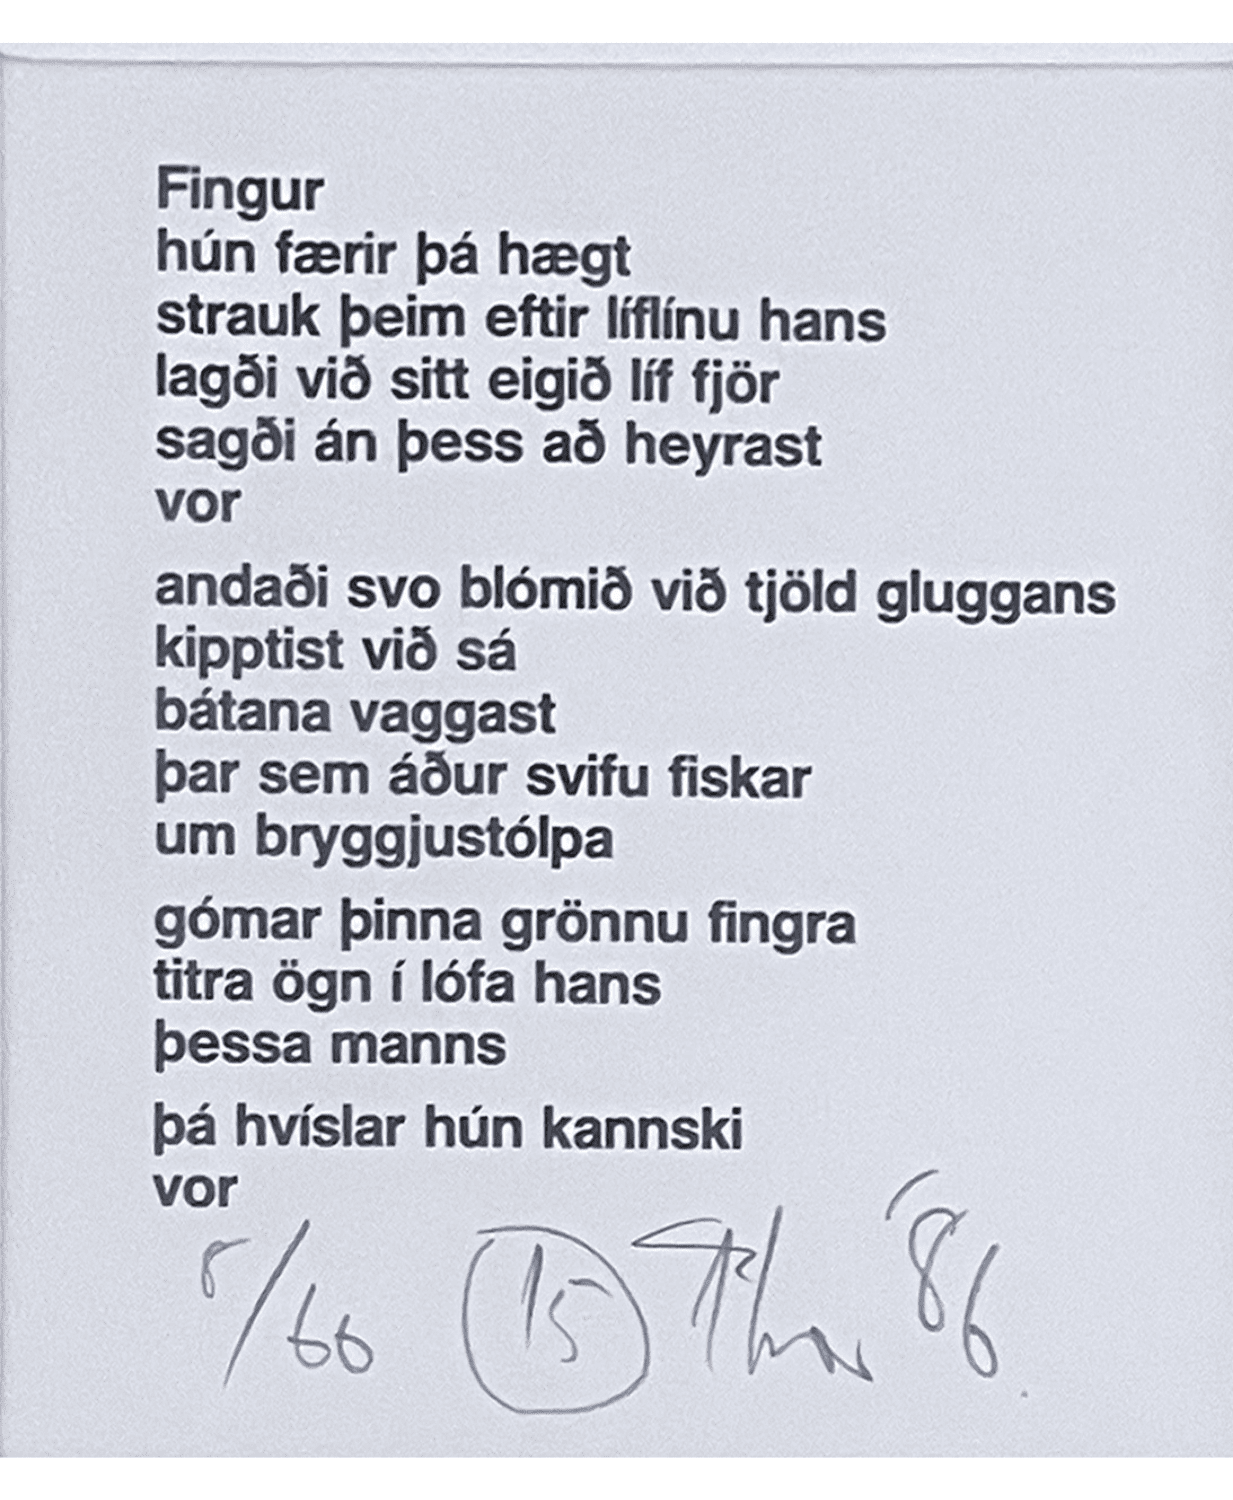 Fingur
hún færir þá hægt
strauk þeim eftir líflínu hans
lagði við sitt eigið líf fjör
sagði án þess að heyrast
vor
andaði svo blómið við tjöld gluggans
kipptist við sá
bátana vaggast
þar sem áður svifu fiskar
um bryggjustólpa
gómar þinna grönnu fingra
titra ögn í lófa hans
þessa manns
þá hvíslar hún kannski
vor
/66 15 Thor '86.